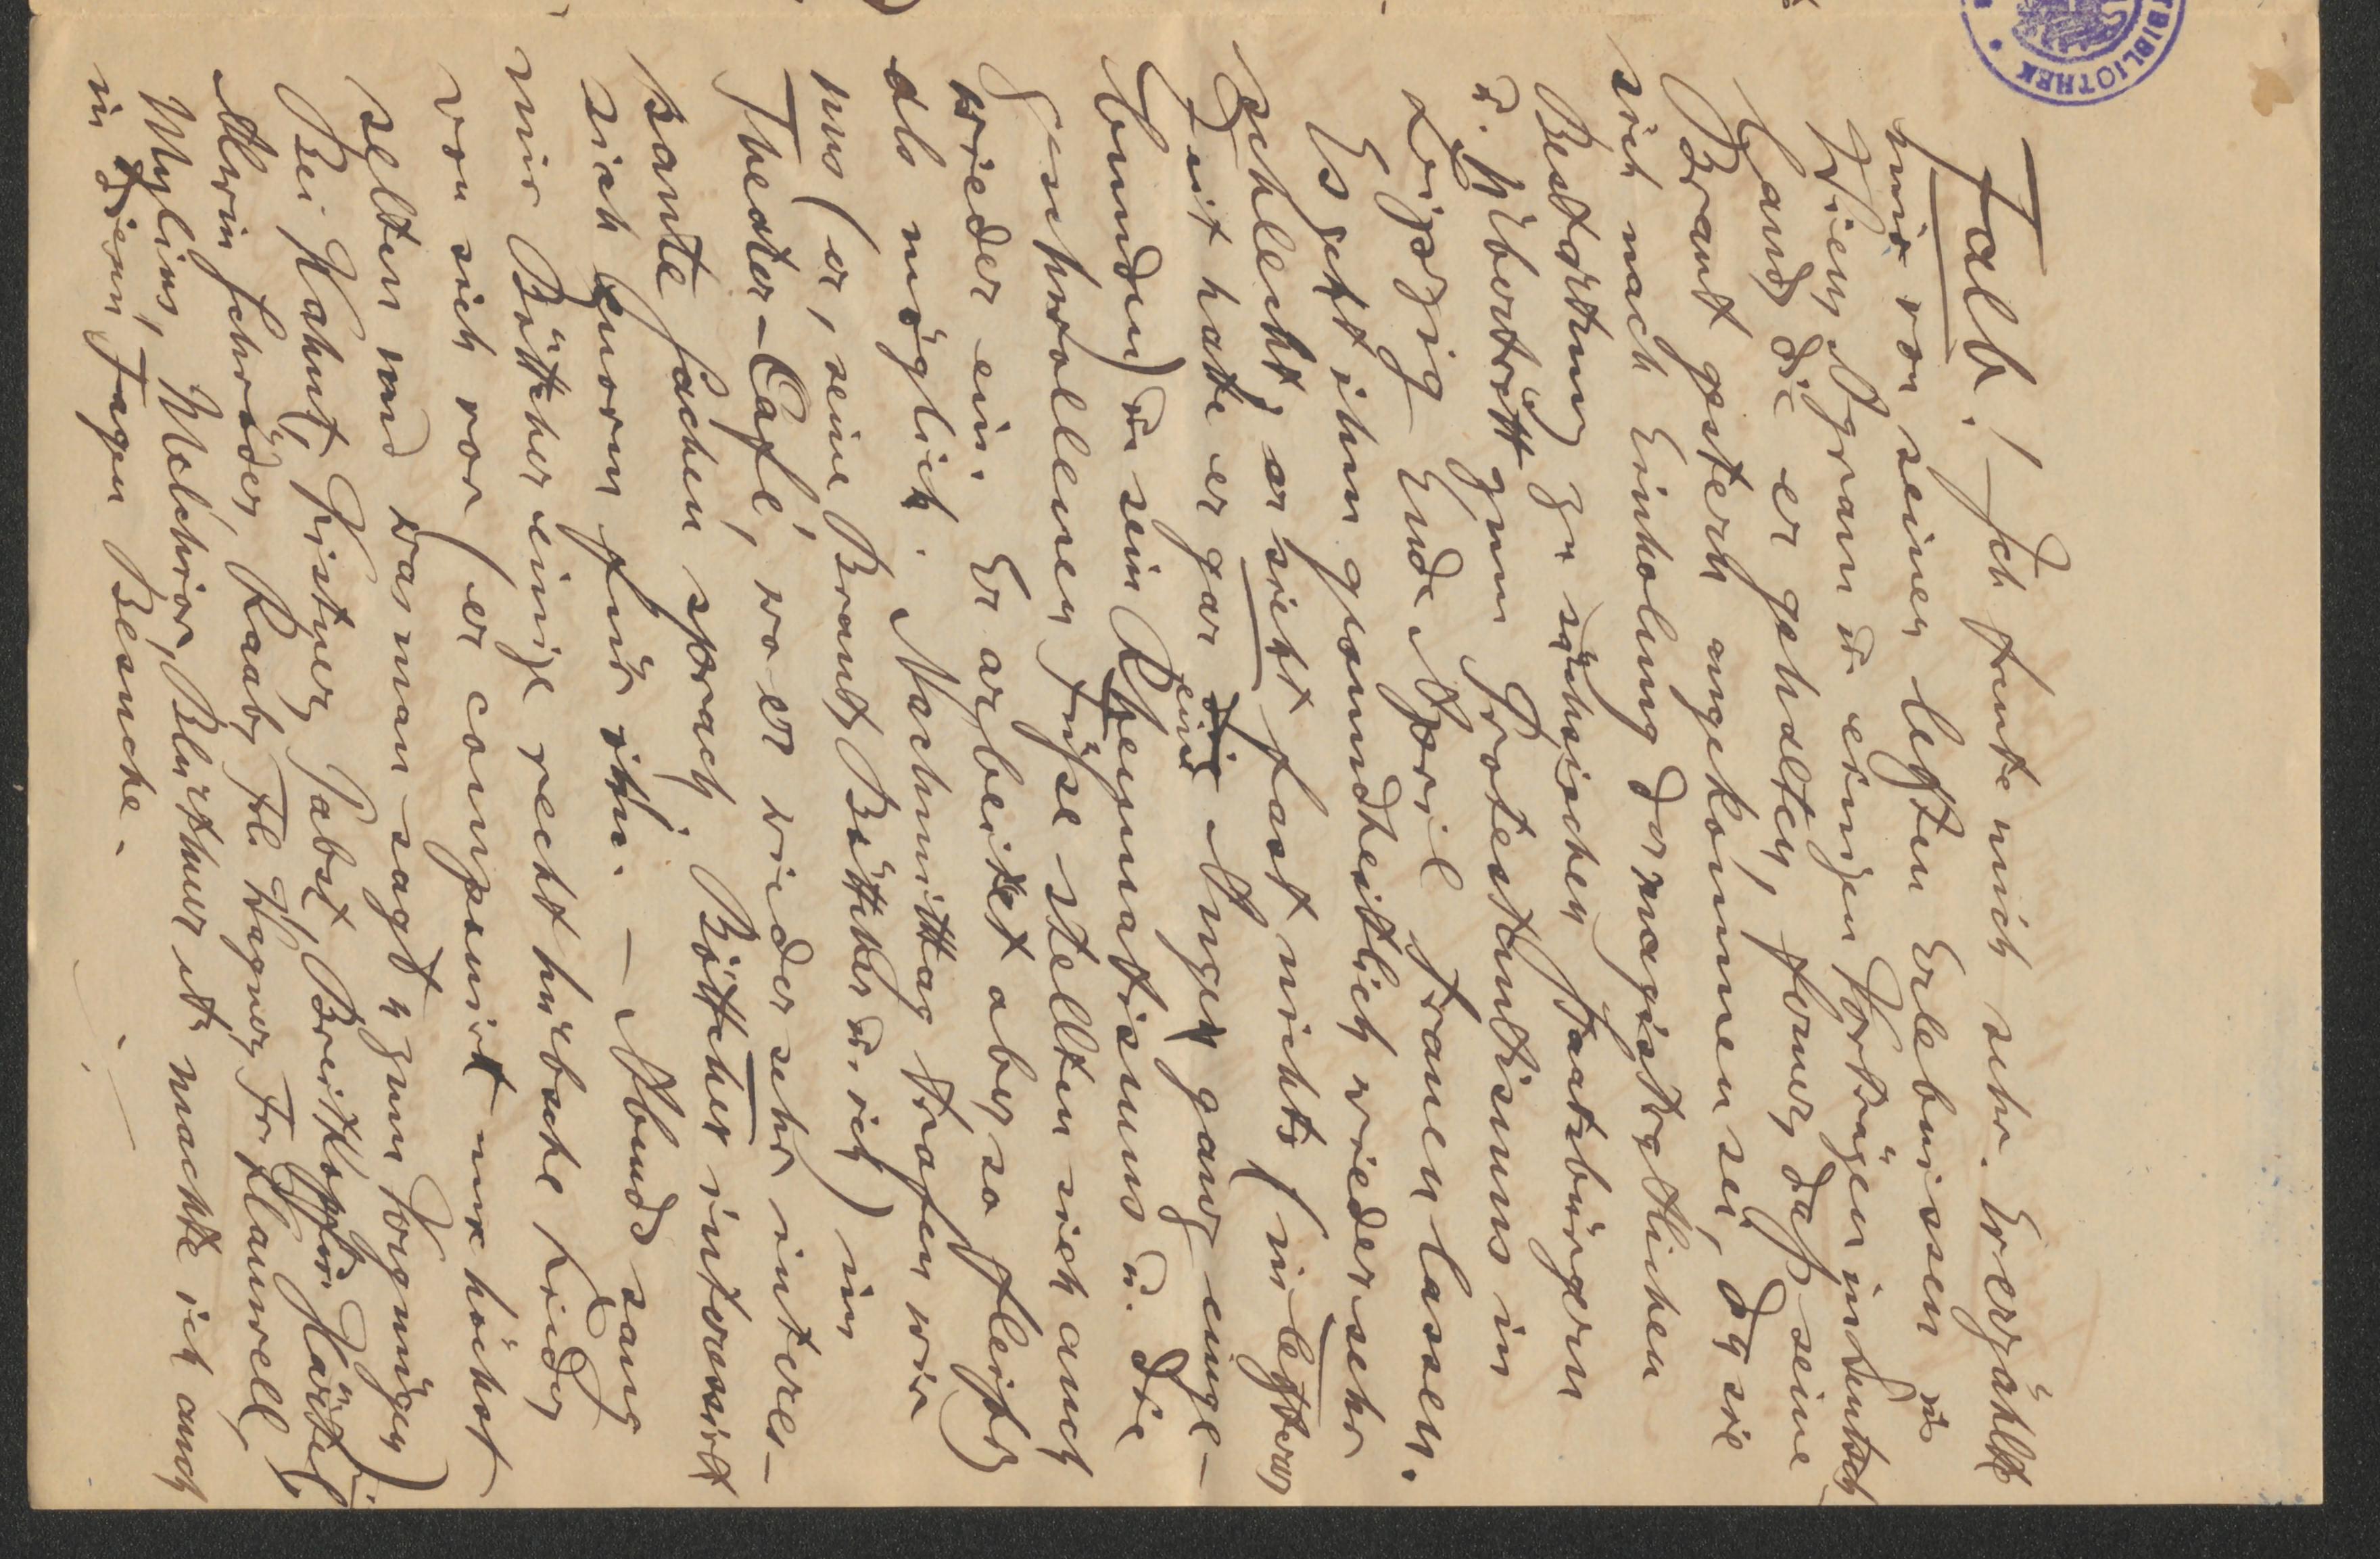 TBIBLIOTHEK
Falb.! Ich freute mich sehr. Er erzählte
mir von seinen letzten Erlebnissen in
Wien, Agram u. einigen Vorträgen in Deutsch-
land, die er gehalten, ferner daß seine
Braut gestern angekommen sei, daß sie
sich nach Einholung der magistratlichen
Bestätigung zu sächsischen Staatsbürgern
u. Übertritt zum Protestantismus in
Leipzig Ende April trauen lassen.
Es geht ihm gesundheitlich wieder sehr
schlecht; er sieht fast nichts (in letzterer
Zeit hatte er gar eine Augen ganz einge-
bunden) u. sein Rheumatismus u. die
geschwollenen Füße stellten sich auch
wieder ein. Er arbeitet aber so fleißig
als möglich. Nachmittag trafen wir
uns (er, seine Braut, Böttcher u. ich) im
Theater-Café, wo er wieder sehr interes-
sante Sachen sprach. Böttcher interessirt
sich enorm für ihn. – Abends sang
mir Böttcher einige recht hübsche Lieder
von sich vor (er componirt nur höchst
selten und was man sagt zum Vergnügen)
Bei Kahnt, Kistner, Pabst, Breitkopf u. Härtel,
Alwin Schröder, Raab, Frl. Wagner, Fr. Flauwell,
Mylius, Melchior, Blüthner etc machte ich auch
in diesen Tagen Besuche.